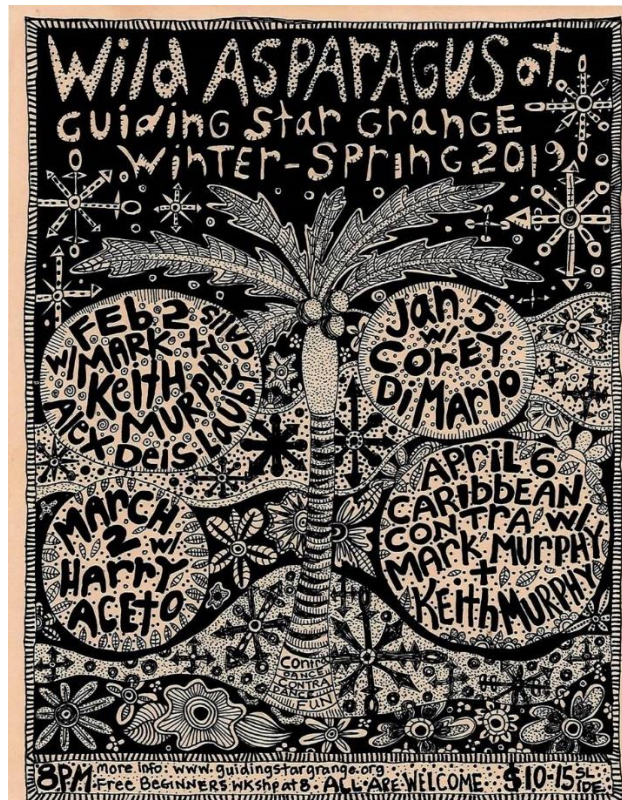 Wild ASPARAGUS at
GuiDiNG Star GranGE
WinTER-SPrinG 2019
FEb 2
w/ MARK +
KeitH
MURPHY
Alex Deis Lauby calls
Jan 5
w/
COREY
DiMario
MARCH
2 w/
HARRY
ACETO
APRiL 6
CARibbEAN
CONTRA w/
MARK MURPHY
+
KeithMURPHY
Contra
DANCE
CONTRA
FUN
8PM more info: www.guidingstargrange.org
Free BEGINNERS WKshp at 8. ALL ARE WELCOME $10-15 SLIDE.